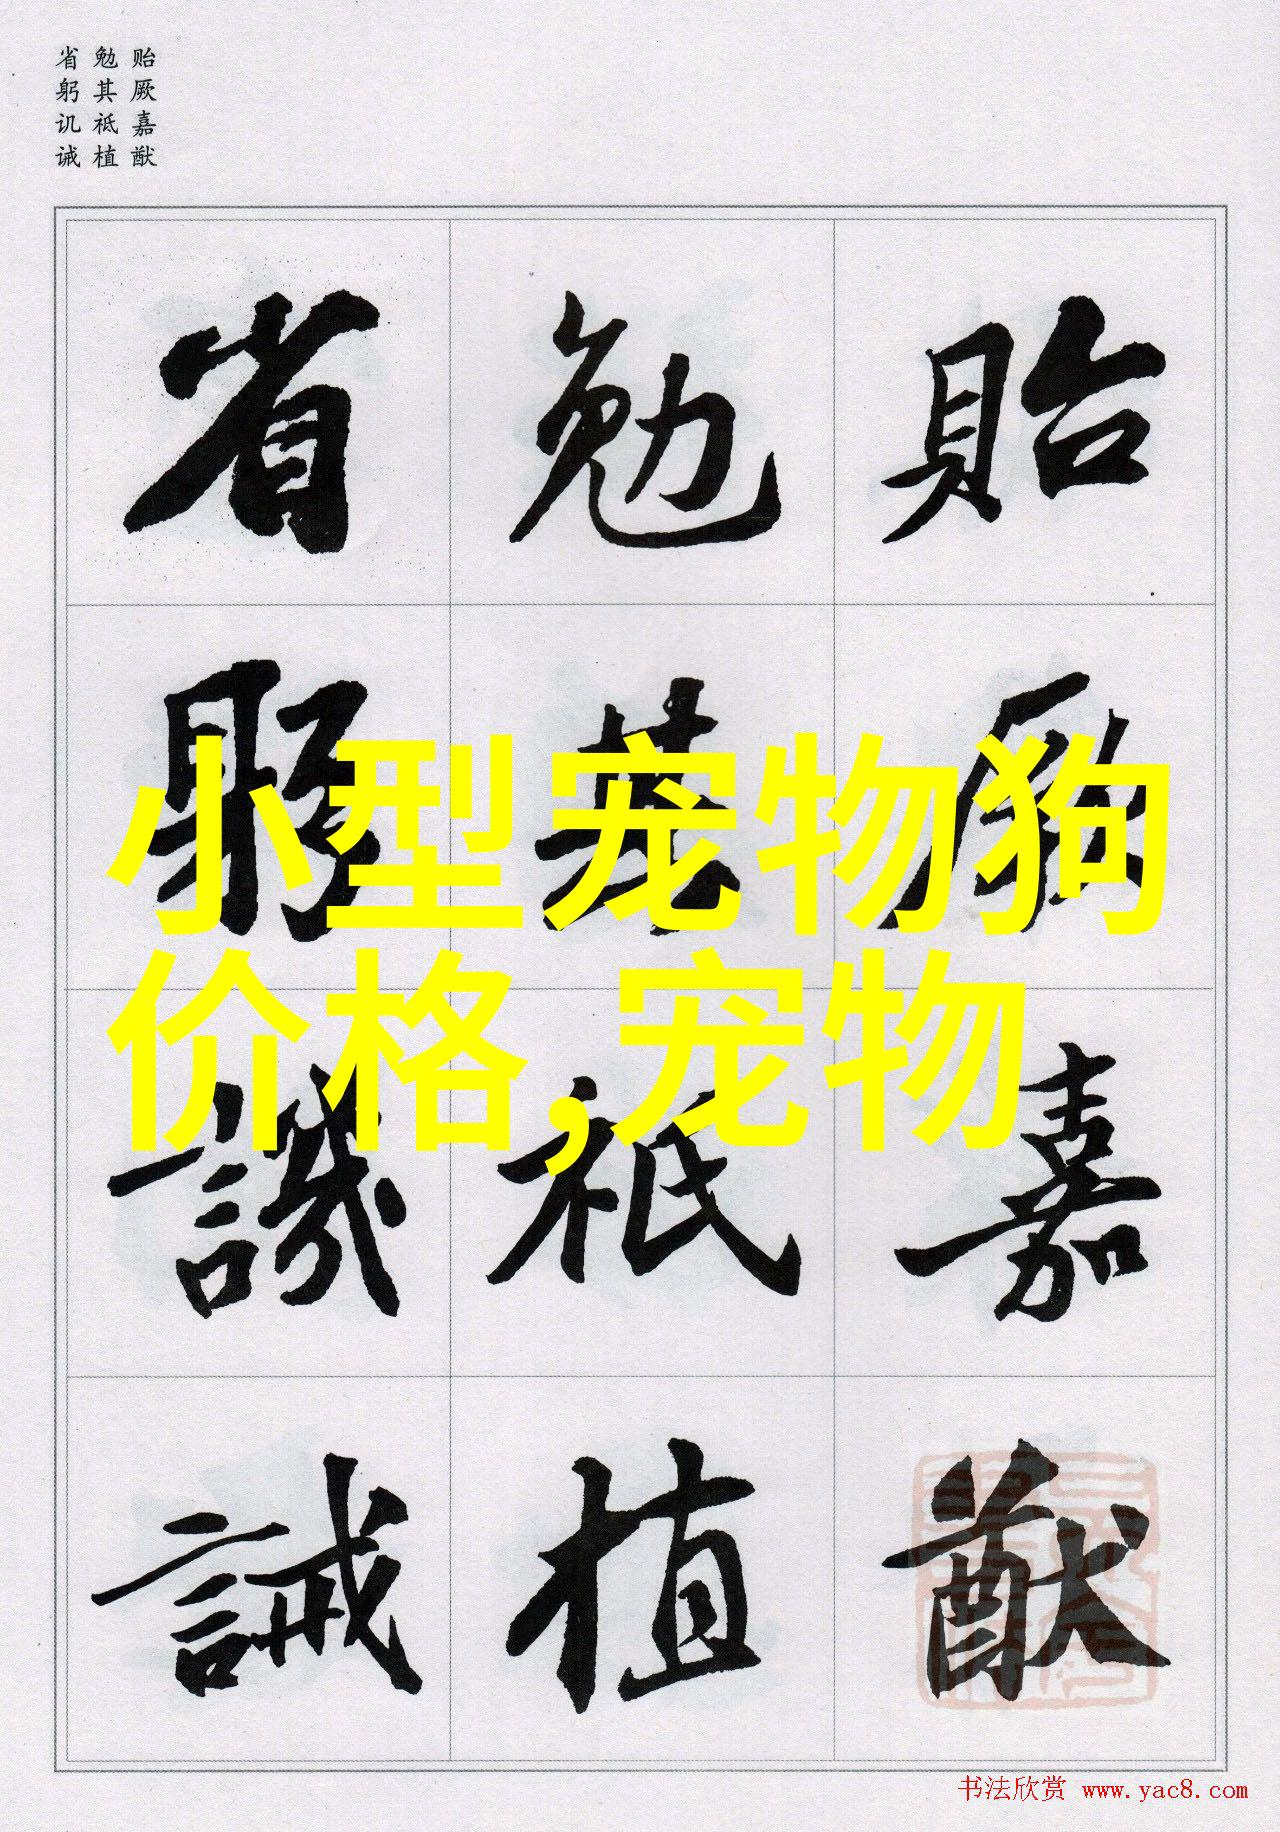 省 勉 贻
躬 其 厥
讥 祗 嘉
诫 植 猷
省 勉 貽
躬 其 厥
譏 祗 嘉
誡 植 猷
小型宠物狗
价格,宠物
书法欣赏 www.yac8.com